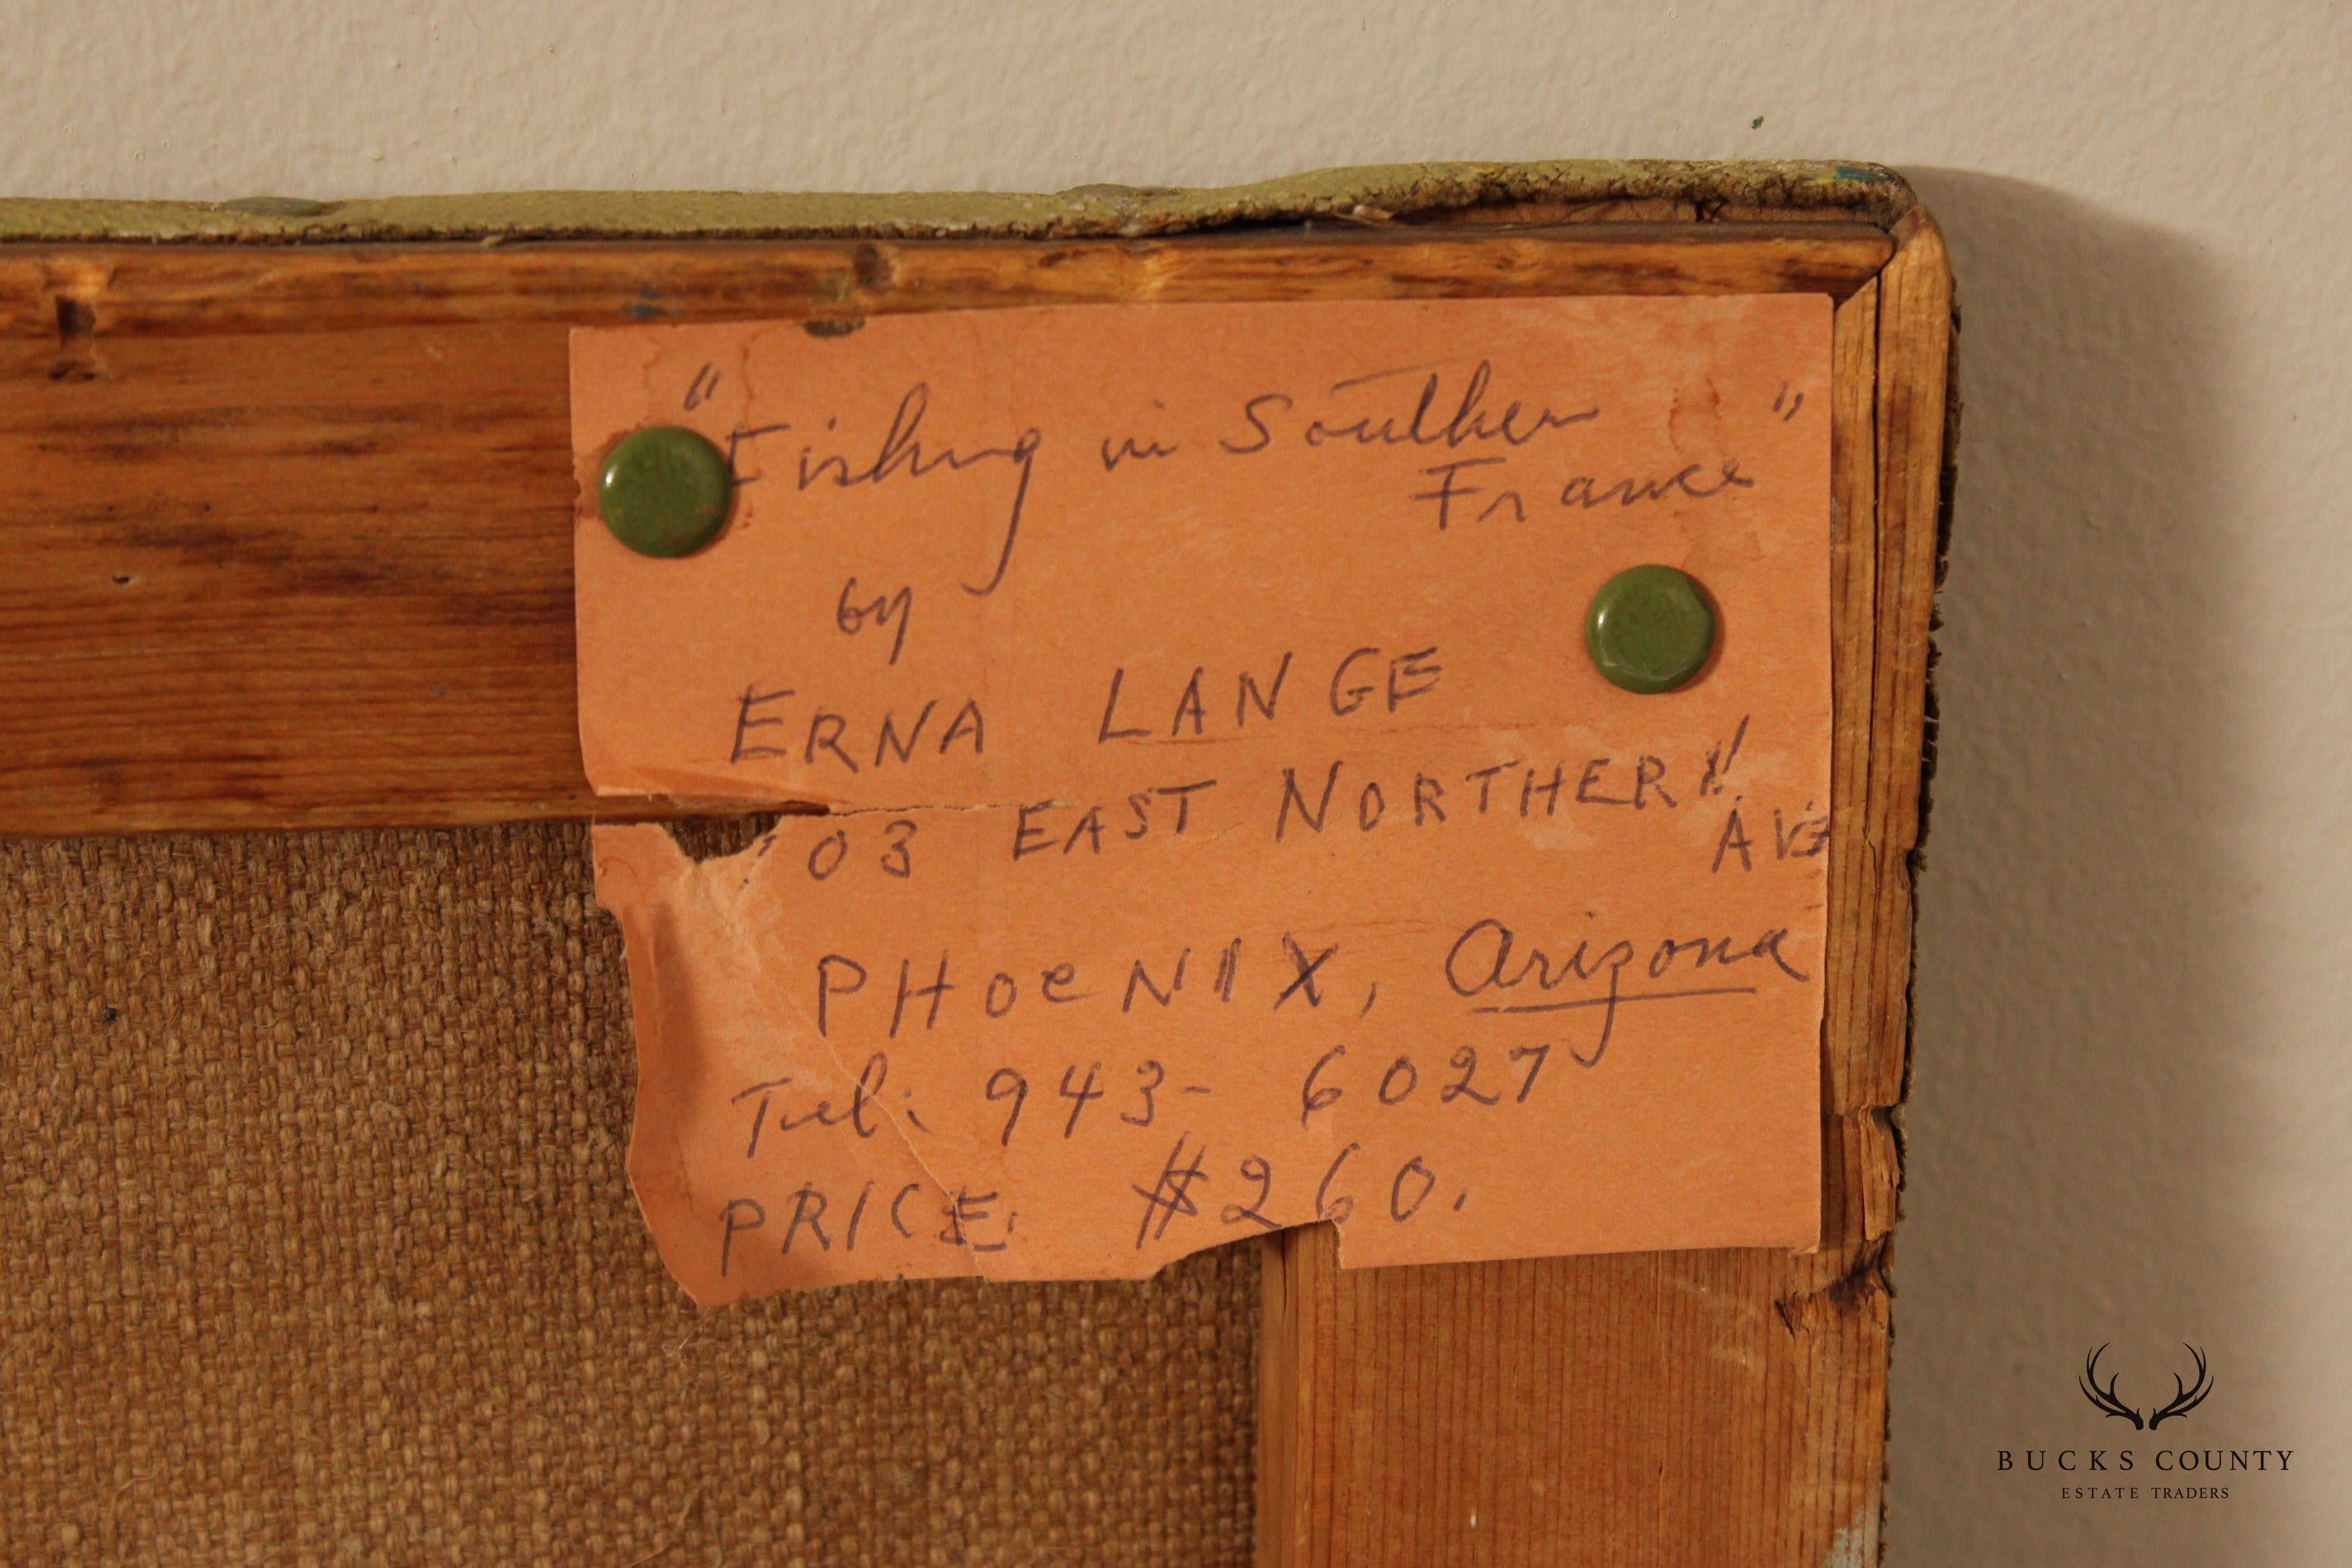 "Fishing in Southern
France"
by
ERNA LANGE
03 EAST NORTHERN
AVE
PHOENIX, Arizona
Tel: 943-6027
PRICE: $260.
BUCKS COUNTY
ESTATE TRADERS